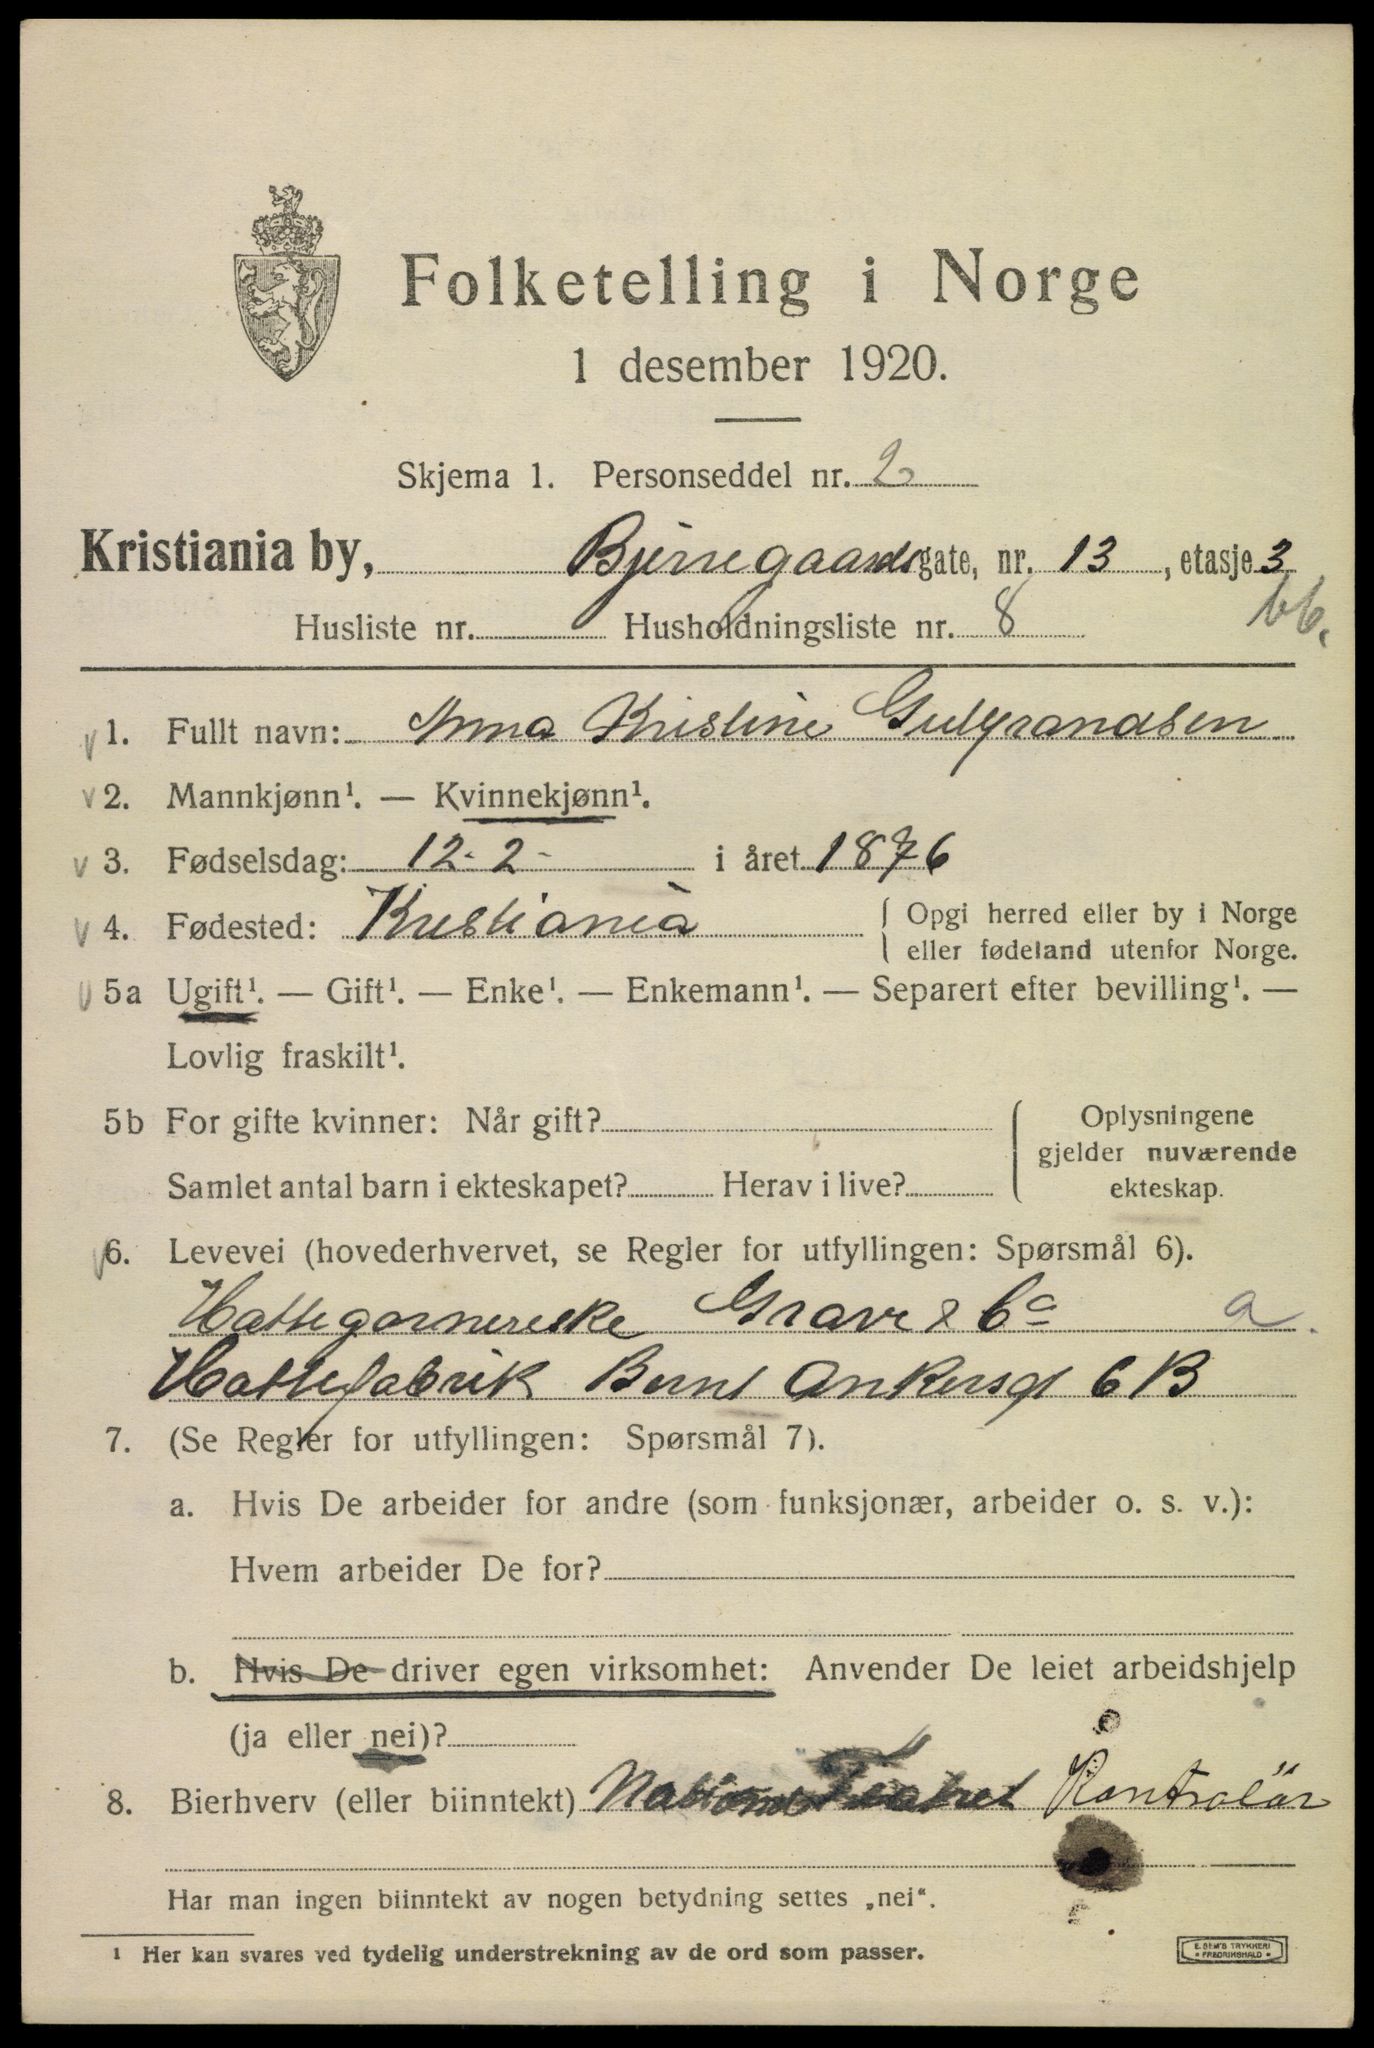 Folketelling i Norge
1 desember 1920.
Skjema 1. Personseddel nr. 2
Kristiania by, Bjerregaardsgate, nr. 13, etasje 3
Husliste nr. Husholdningsliste nr. 8 bb.
v 1. Fullt navn: Anna Kristine Gulbrandsen
v 2. Mannkjønn¹. — Kvinnekjønn¹.
v 3. Fødselsdag: 12-2- i året 1876
v 4. Fødested: Kristiania { Opgi herred eller by i Norge
eller fødeland utenfor Norge.
v 5a Ugift¹. — Gift¹. — Enke¹. — Enkemann¹. — Separert efter bevilling¹. —
Lovlig fraskilt¹.
5b For gifte kvinner: Når gift? Oplysningene
gjelder nuværende
Samlet antal barn i ekteskapet? Herav i live? ekteskap.
v 6. Levevei (hovederhvervet, se Regler for utfyllingen: Spørsmål 6).
Hattegarnerske Grave & Co a.
Hattefabrik Bernt Ankersgt 6B
7. (Se Regler for utfyllingen: Spørsmål 7).
a. Hvis De arbeider for andre (som funksjonær, arbeider o. s. v.):
Hvem arbeider De for?
b. Hvis De driver egen virksomhet: Anvender De leiet arbeidshjelp
(ja eller nei)?
8. Bierhverv (eller biinntekt) National Teatret Kontrolär
Har man ingen biinntekt av nogen betydning settes „nei“.
¹ Her kan svares ved tydelig understrekning av de ord som passer.
E. SEM'S TRYKKERI
FREDRIKSHALD